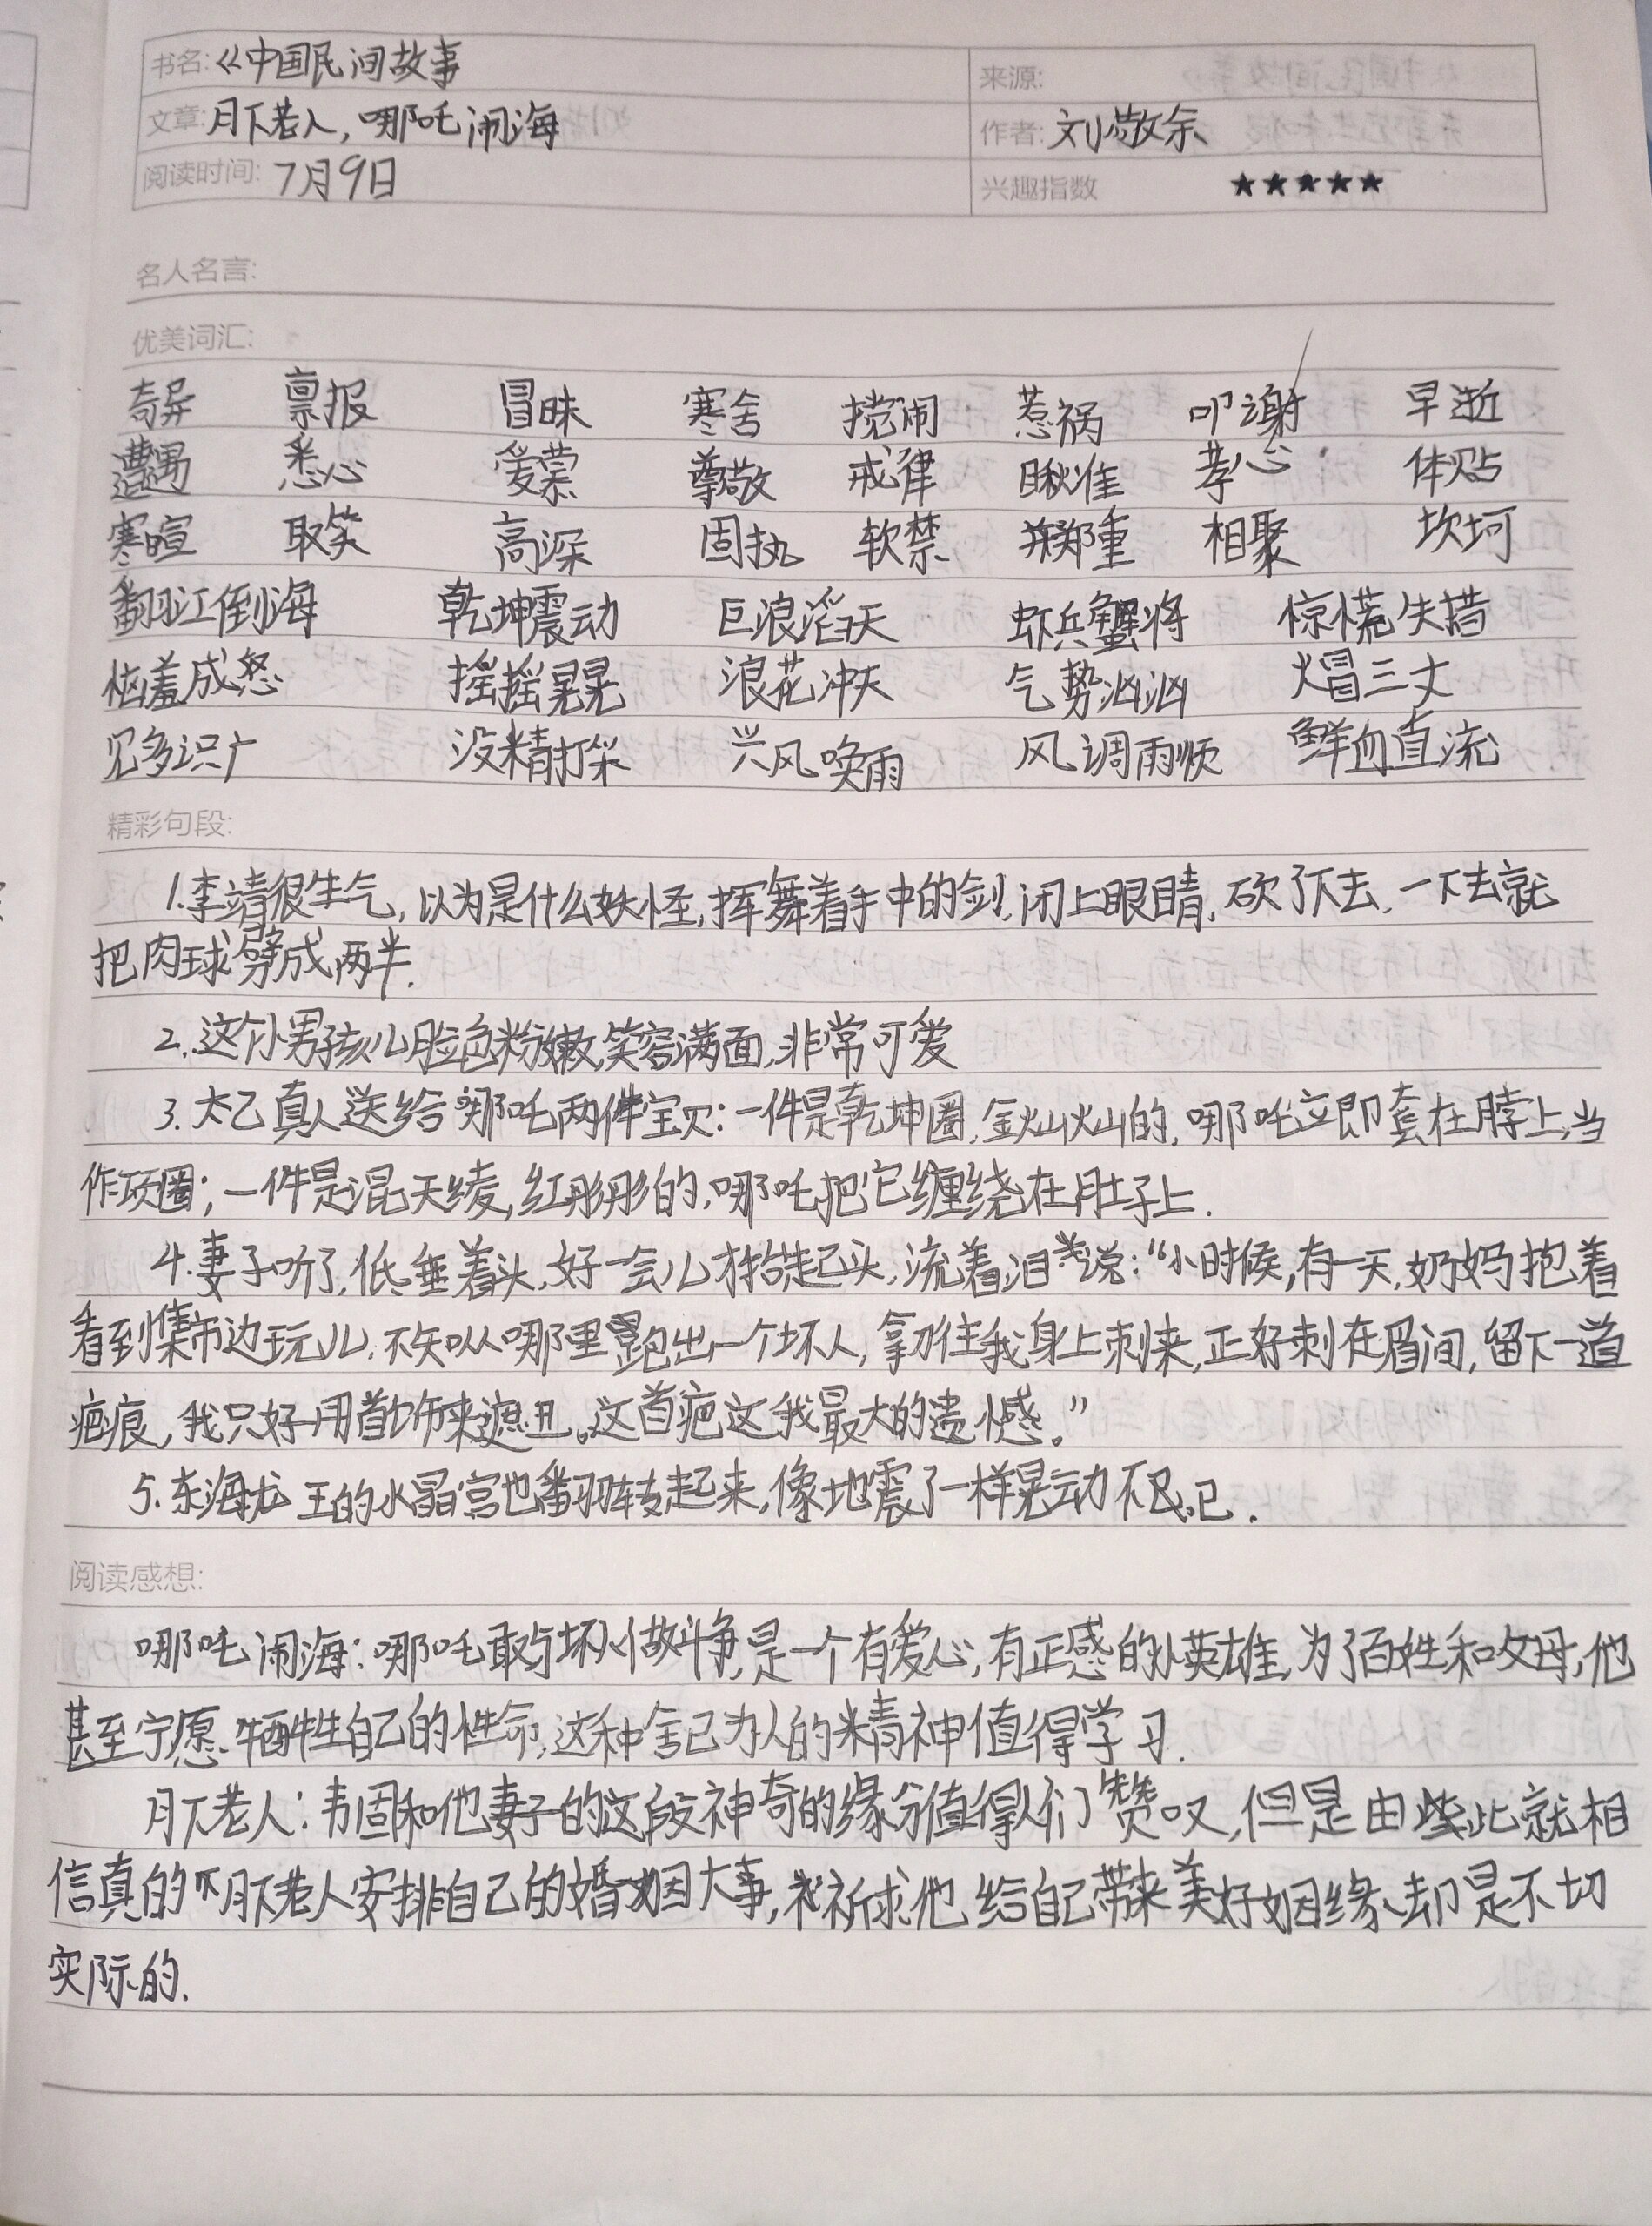 书名:《中国民间故事
来源:
文章:月下老人,哪吒闹海
作者:刘敬余
阅读时间:7月9日
兴趣指数 ★★★★★
名人名言:
优美词汇:
奇异 禀报 冒昧 寒舍 搅闹 惹祸 叩谢 早逝
遭遇 悉心 爱慕 尊敬 戒律 瞅准 孝心 体贴
寒暄 取笑 高深 固执 软禁 郑重 相聚 坎坷
翻江倒海 乾坤震动 巨浪滔天 虾兵蟹将 惊慌失措
恼羞成怒 摇摇晃晃 浪花冲天 气势汹汹 火冒三丈
见多识广 没精打采 兴风唤雨 风调雨顺 鲜血直流
精彩句段:
1.李靖很生气,以为是什么妖怪,挥舞着手中的剑,闭上眼睛,砍了下去,一下去就
把肉球劈成两半.
2.这个小男孩儿脸色粉嫩,笑容满面,非常可爱
3.太乙真人送给哪吒两件宝贝:一件是乾坤圈,金灿灿的,哪吒立即套在脖上,当
作项圈;一件是混天绫,红彤彤的,哪吒把它缠绕在肚子上.
4.妻子听了,低垂着头,好一会儿才抬起头,流着泪说:“小时候,有一天,奶妈抱着
看到集市边玩儿,不知从哪里跑出一个坏人,拿刀往我身上刺来,正好刺在眉间,留下一道
疤痕,我只好用首饰来遮丑。这首疤这我最大的遗憾。”
5.东海龙王的水晶宫也翻转起来,像地震了一样晃动不已.
阅读感想:
哪吒闹海:哪吒敢于坏人做斗争,是一个有爱心,有正感的小英雄,为了百姓和父母,他
甚至宁愿牺牲自己的性命,这种舍己为人的精神值得学习.
月下老人:韦固和他妻子的这段神奇的缘分值得人们赞叹,但是由此就相
信真的月下老人安排自己的婚姻大事,祈求他给自己带来美好姻缘、却是不切
实际的.